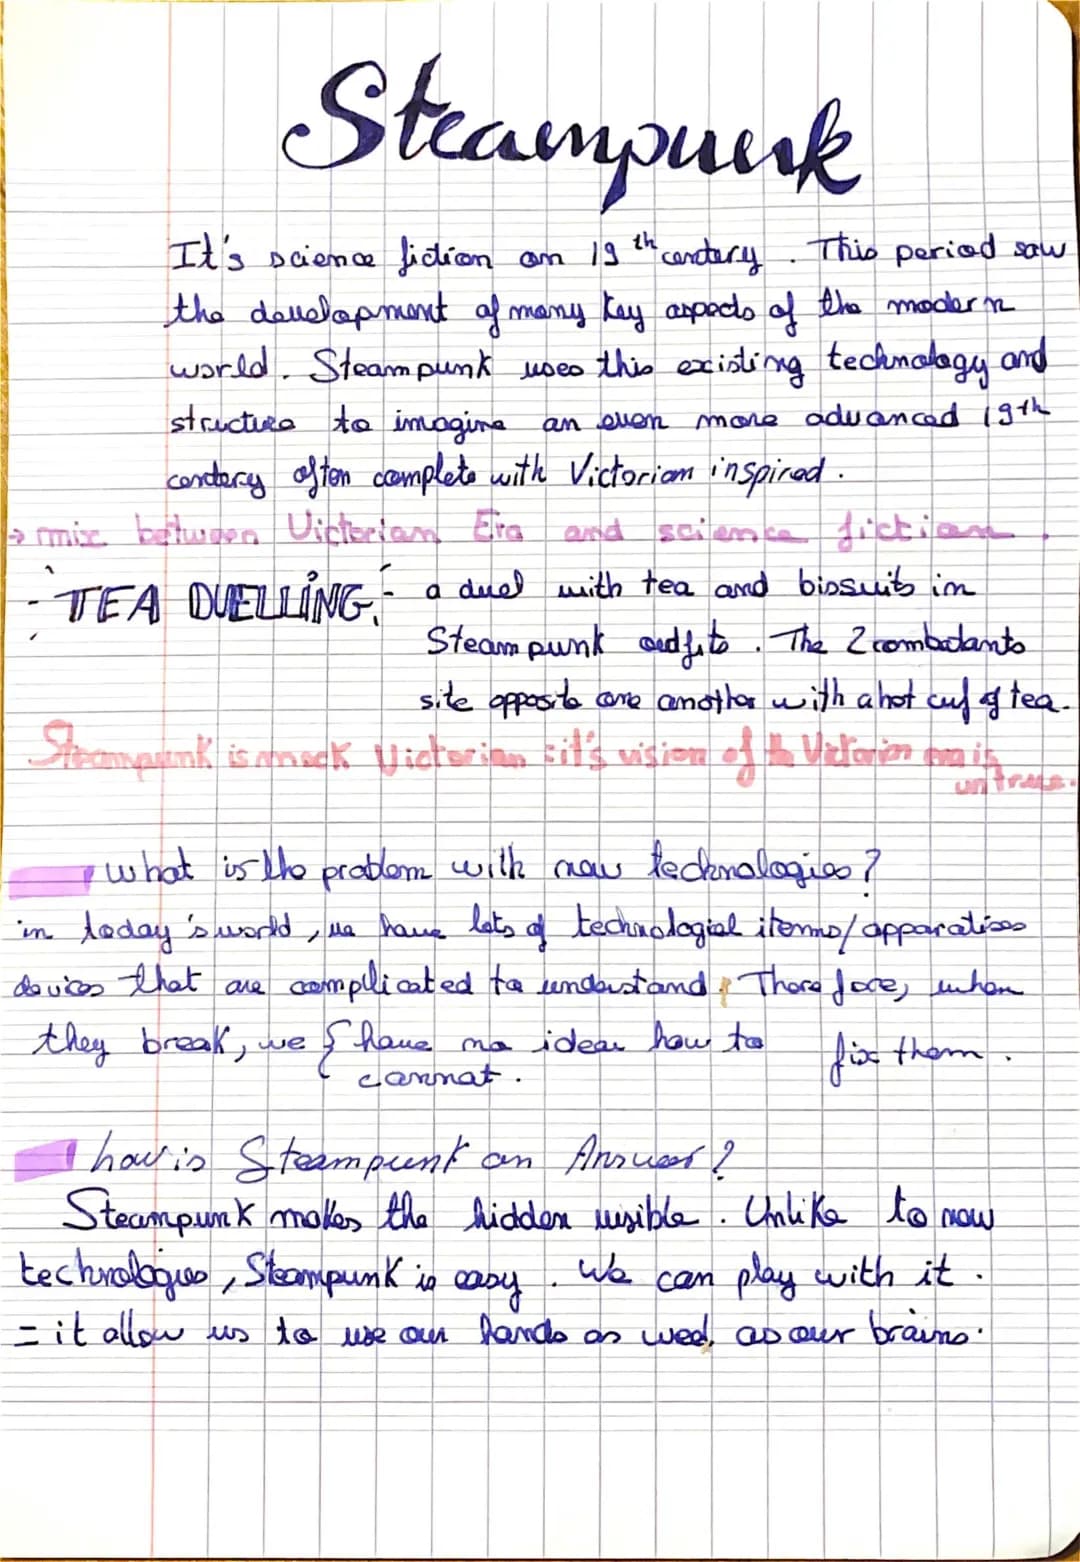 Steampunk
It's science fiction on 19th century. This period saw
the development of many key aspects of the modern
world. Steampunk uses this existing technology and
structure to imagine an even more advanced 19th
century often complete with Victorian inspired.
→ mix between Victorian Era and science fiction.
- TEA DUELLING: - a duel with tea and bissuits in
Steampunk outfits. The 2 combatants
site opposite one another with a hot cuf of tea.
Steampunk is mock Victorian : it's vision of the Victorian era is
untrue.
what is the problem with new technologies?
in today's world, we have lots of technologial items/apparatises
devices that are complicated to understand. Therefore, when
they break, we { have no idea how to fix them.
cannot.
how is Steampunk an Answer?
Steampunk makes the hidden visible. Unlike to new
technologies, Steampunk is easy. We can play with it.
= it allow us to use our hands as well as our brains.